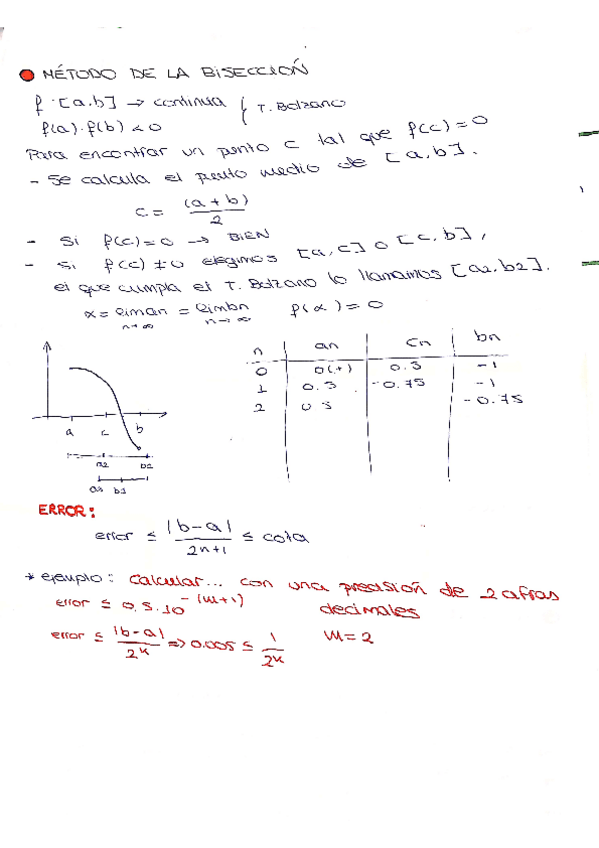 MÉTODO DE LA BISECCIÓN
f: [a,b] → continua { T. Bolzano
f(a)·f(b) < 0
Para encontrar un punto c tal que f(c) = 0
- Se calcula el punto medio de [a,b].
c = (a+b)/2
- Si f(c) = 0 → BIEN
- si f(c) ≠ 0 elegimos [a,c] o [c,b],
el que cumpla el T. Bolzano lo llamamos [a2,b2].
α = lim an = lim bn f(α) = 0
n→∞ n→∞
n an cn bn
0 0(+) 0.5 -1
1 0.5 -0.75 -1
2 0.5 -0.75
a c b
a2 b2
a3 b3
ERROR:
error ≤ |b-a|/2n+1 ≤ cota
* ejemplo: calcular... con una precisión de 2 cifras
decimales
error ≤ 0.5·10^-(m+1)
error ≤ |b-a|/2^n => 0.005 ≤ 1/2^n m = 2